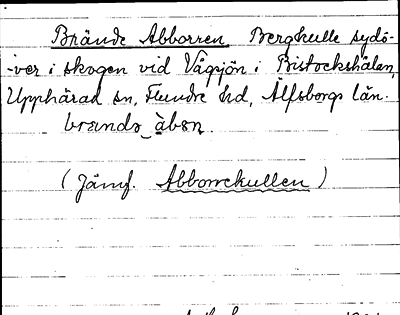 Brände Abborren Bergkulle sydö-
-ver i skogen vid Vågsjön i Bistockshålan,
Upphärad sn, Flundre hd, Älfsborgs län.
brands_àbon.
(Jämf. Abborrekullen)